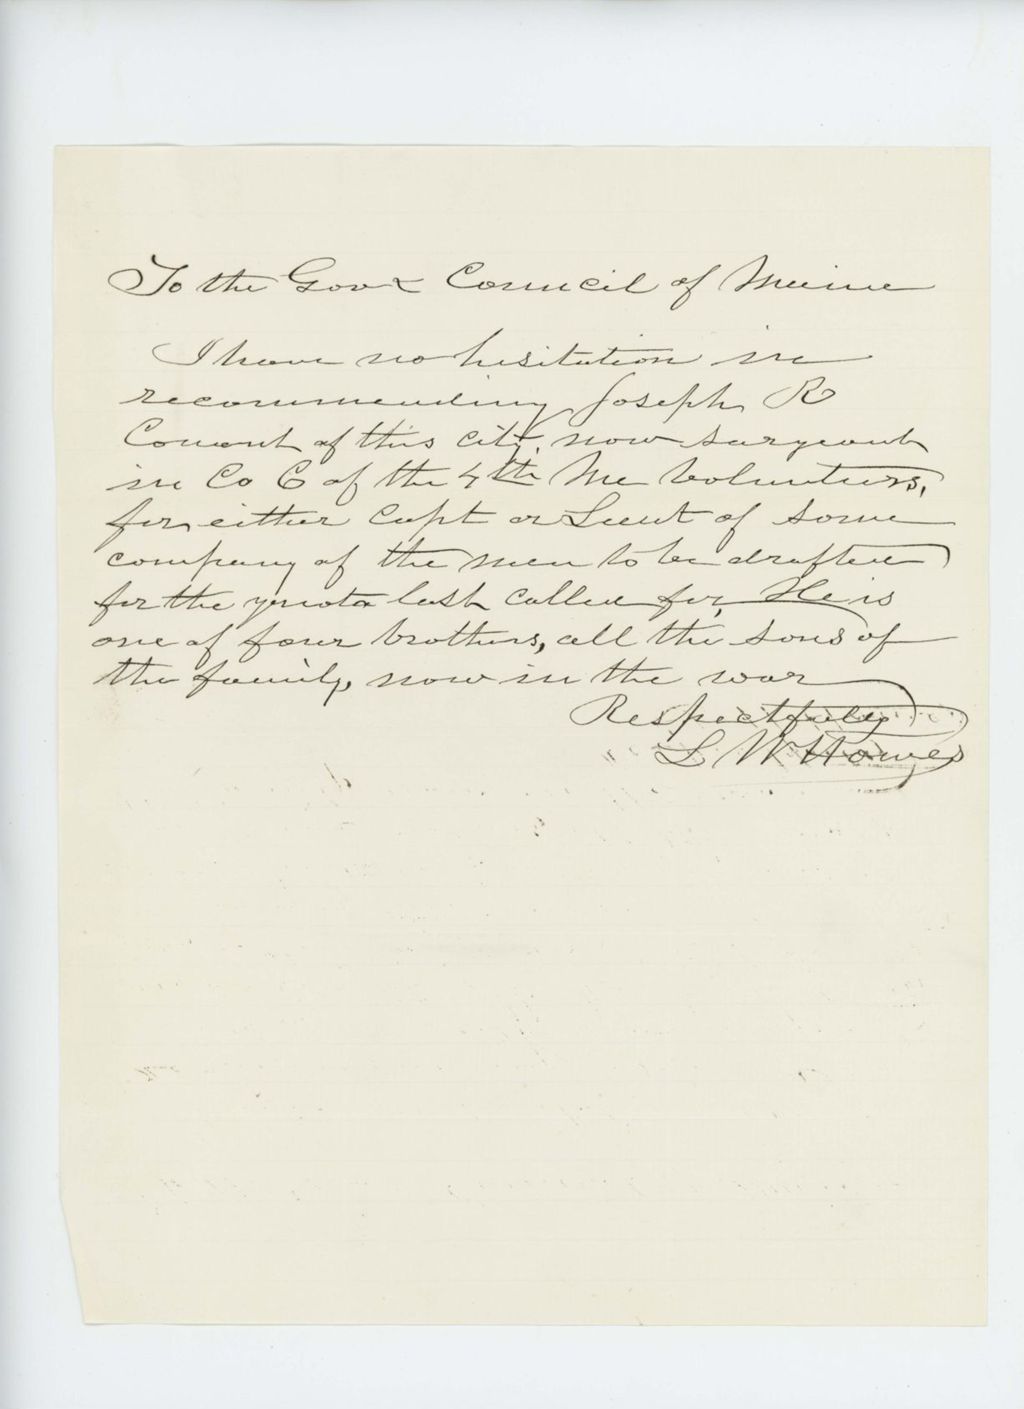 To the Gov & Council of Maine
I have no hesitation in
recommending Joseph R
Conant of this city, now sargeant
in Co C of the 4th Me Volunteers,
for either Capt or Lieut of some
company of the men to be drafted
for the quota last called for, He is
one of four brothers, all the sons of
the family, now in the war
Respectfully
L W Howes